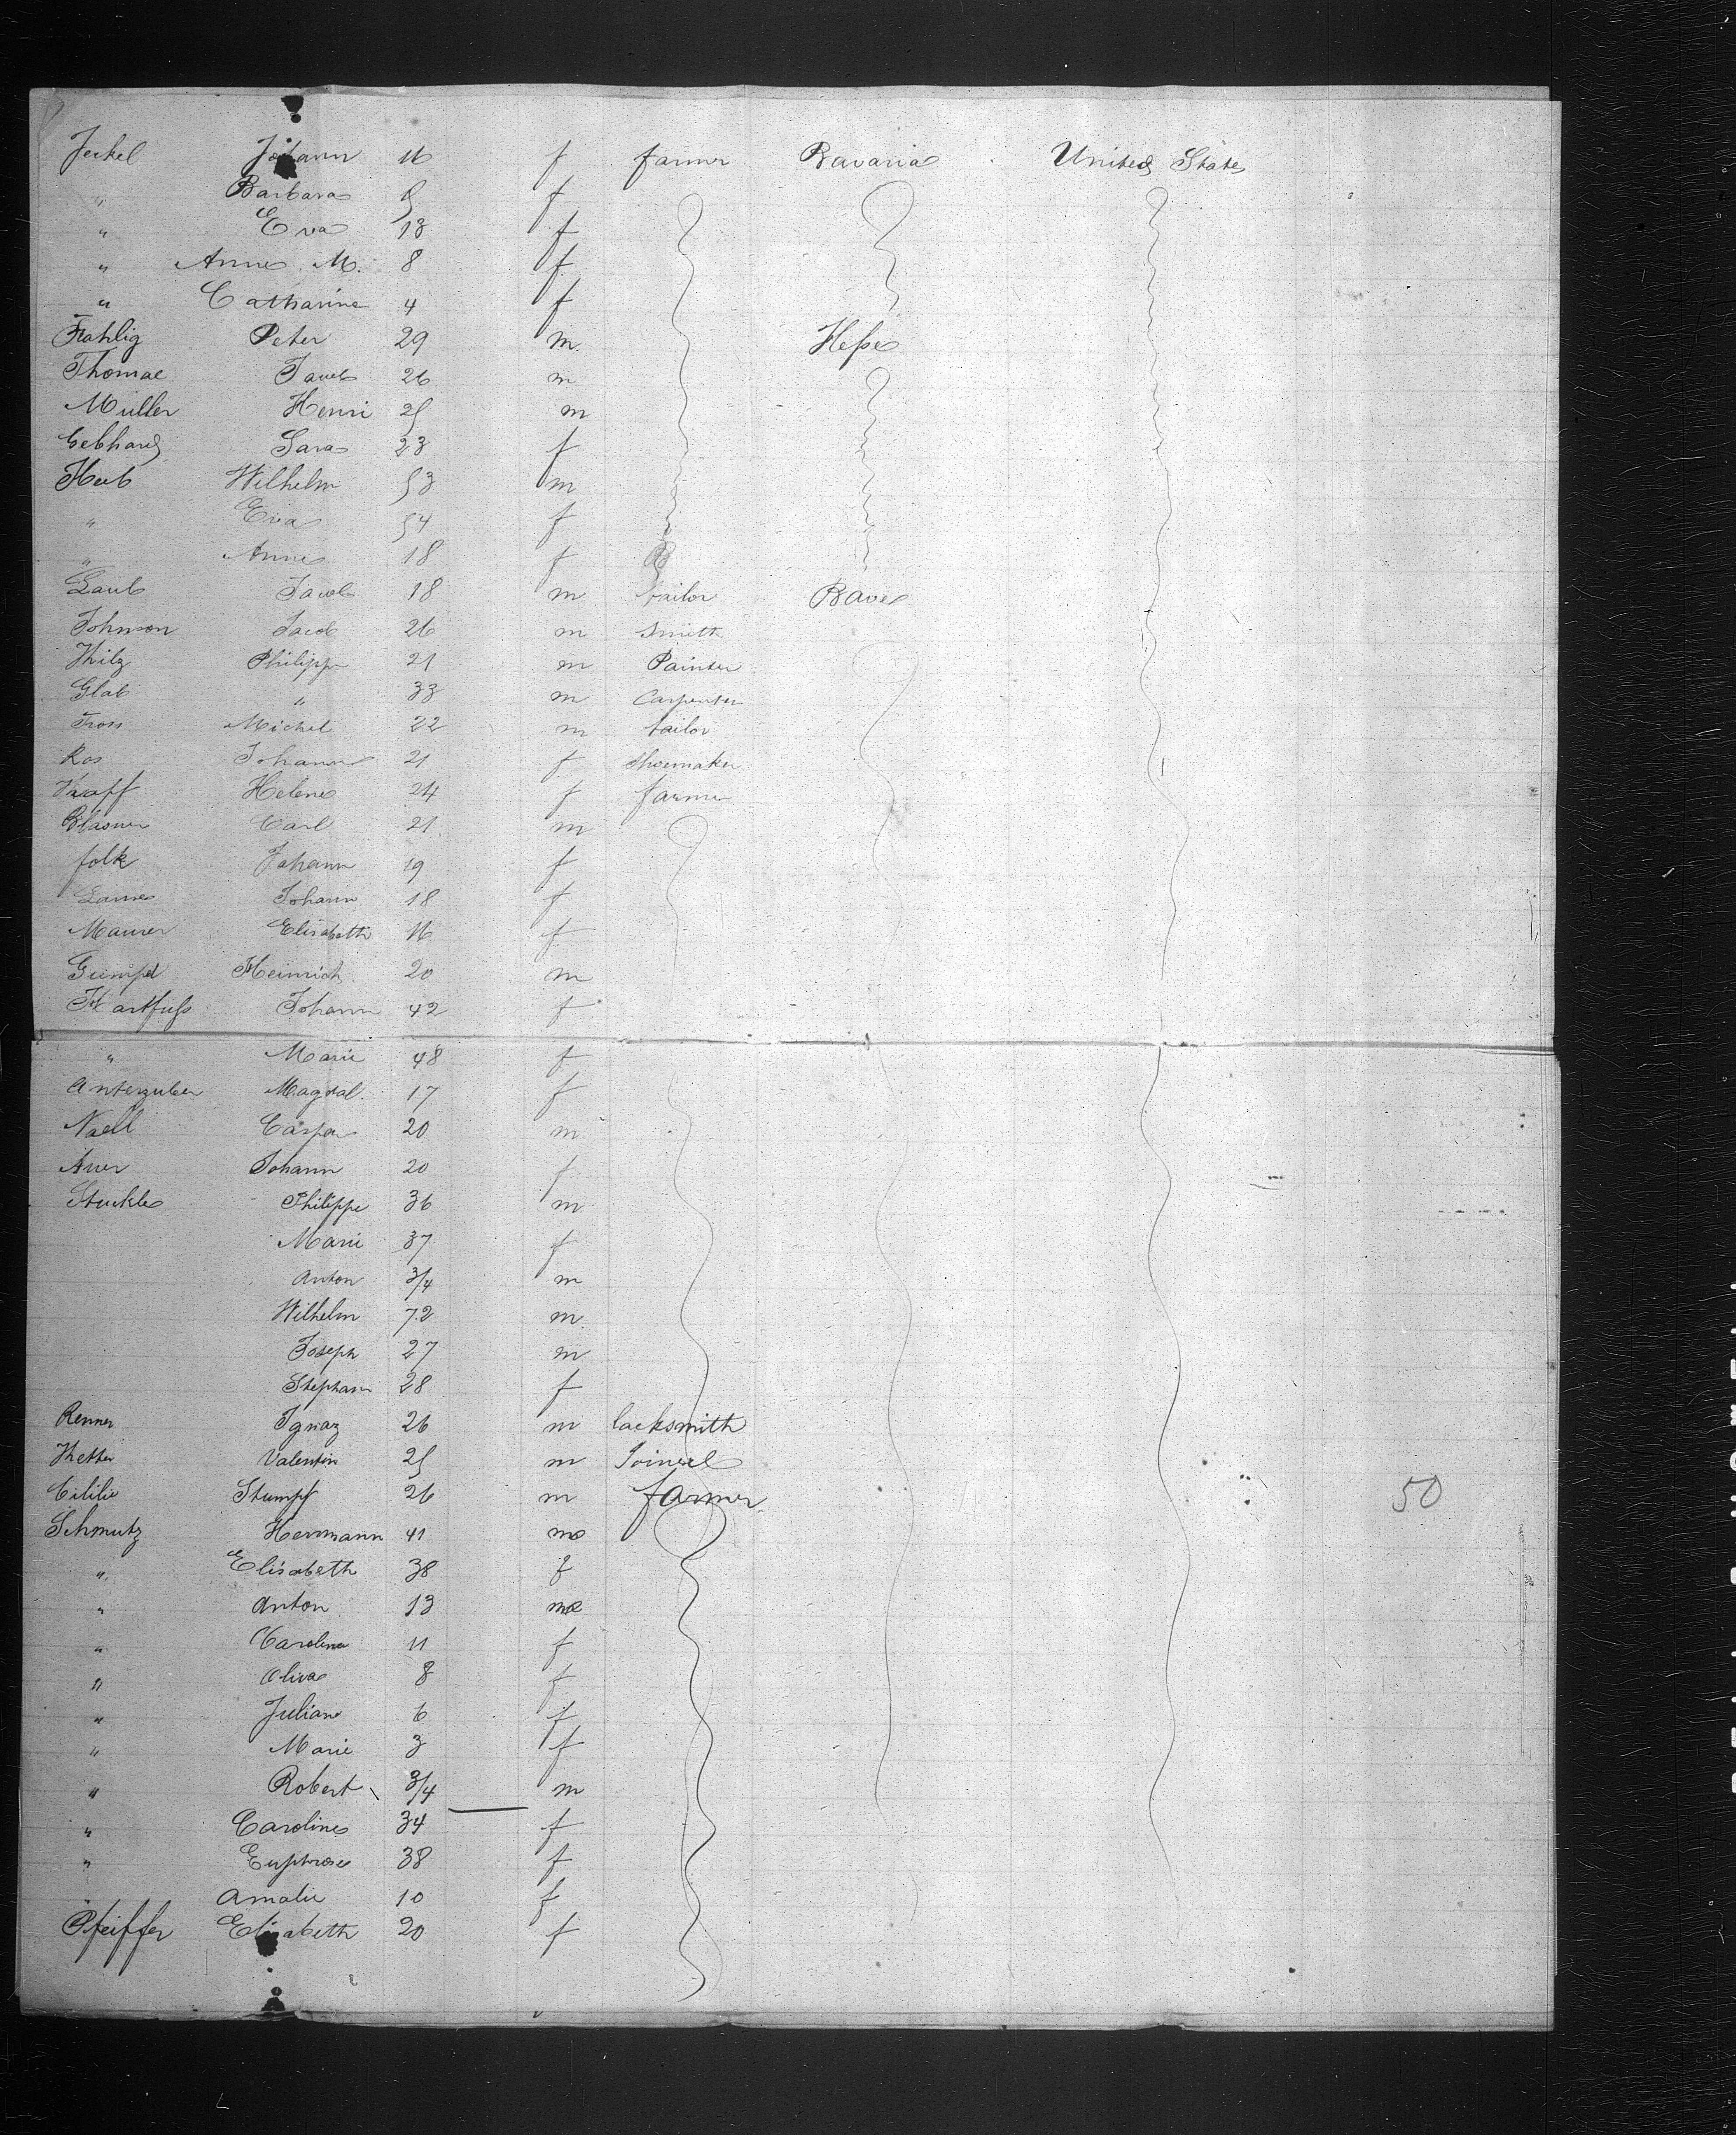 Jeckel Johann 16 f farmer Bavaria United States
" Barbara 9 f
" Eva 13 f
" Anna M. 8 f
" Catharine 4 f
Frahlig Peter 29 m Heſse
Thomae Jacob 26 m
Müller Henri 25 m
Gebhard Sara 23 f
Heeb Wilhelm 53 m
" Eva 54 f
" Anna 18 f
Laub Jacob 18 m tailor Bava
Johnson Jacob 26 m Smith
Hilz Philipp 21 m Painter
Glab " 33 m Carpenter
Tross Michel 22 m tailor
Ros Johann 21 f Shoemaker
Knapf Helene 24 f farmer
Blasner Carl 21 m
folk Johann 19 f
Johann 18 f
Maurer Elisabeth 16 f
Gumpel Heinrich 20 m
Hartfuſs Johann 42 f
" Marie 48 f
Anterzuber Magdal. 17 f
Naell Caspar 20 m
Auer Johann 20 f
Stuckle Philippe 36 m
Marie 37 f
Anton 3/4 m
Wilhelm 72 m
Joseph 27 m
Stephan 28 f
Renner Ignaz 26 m locksmith
Valentin 25 m
Cililie Stumpf 26 m farmer 50
Schmutz Hermann 41 m
" Elisabeth 38 f
" Anton 13 m
" Carolina 11 f
" Oliva 8 f
" Juliane 6 f
" Marie 3 f
" Robert 3/4 m
" Caroline 34 f
" Euphrose 38 f
Amalie 10 f
Pfeiffer Elisabeth 20 f